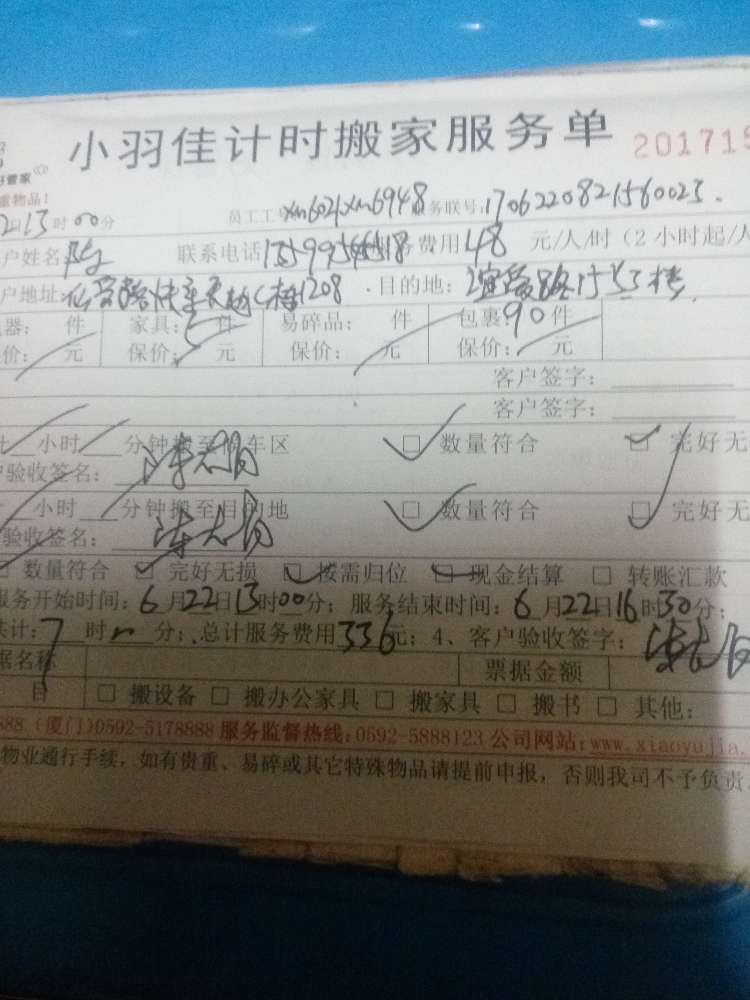 小羽佳计时搬家服务单 201715
好管家
重物品!
13时00分 员工工号xm6021xm6948服务联号:1706220821560023.
户姓名 联系电话 务费用48元/人/时(2小时起/人
户地址: 1208.目的地:
器: 件 家具:5件 易碎品: 件 包裹:90件
价: 元 保价: 元 保价: 元 保价: 元
客户签字:
客户签字:
小时 分钟搬至停车区 □ 数量符合 □ 完好无
户验收签名:
小时 分钟搬至目的地 □ 数量符合 □ 完好无
验收签名:
□ 数量符合 □ 完好无损 □ 按需归位 □ 现金结算 □ 转账汇款
服务开始时间:6月22日13时00分;服务结束时间:6月22日16时30分;
共计:7时 分;总计服务费用336元;4、客户验收签字:
据名称 票据金额
目 □ 搬设备 □ 搬办公家具 □ 搬家具 □ 搬书 □ 其他:
888 (厦门)0592-5178888 服务监督热线:0592-5888123 公司网站:www.xiaoyujia.
物业通行手续,如有贵重、易碎或其它特殊物品请提前申报,否则我司不予负责